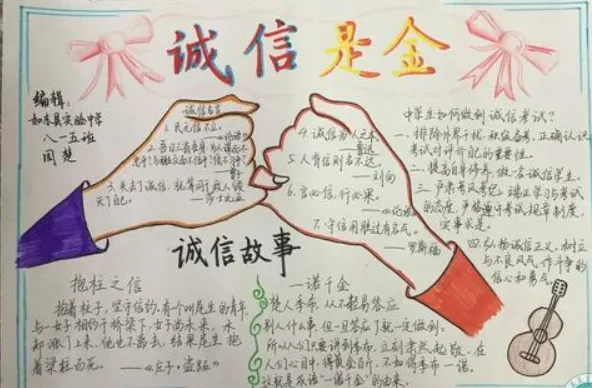 诚信是金
编辑：
如东县实验中学
八一五班
周楚
诚信名言
1.民无信不立。
——《论语》
2.吾日三省吾身：为人谋而不
忠乎？与朋友交而不信乎？传不习
乎？
3.失去了诚信，就等同于敌人毁
灭了自己。
——莎士比亚
4.诚信为人之本
——鲁迅
5.人背信则名不达。
——刘向
6.言必信，行必果。
——《论语》
7.守信用胜过有名气。
——罗斯福
中学生如何做到诚信考试？
一、排除外界干扰，积极备考，正确认识
考试对评价自己的重要性。
二、提高自身修养，做一名诚信学生。
三、严肃考风考纪，端正学习与考试
的态度，严格遵守考试规章制度，
实事求是。
四、弘扬诚信正义，树立
与不良风气作斗争的
信心和勇气。
诚信故事
抱柱之信
抱着柱子，坚守信约。有个叫尾生的青年，
与一女子相约于桥梁下，女子尚未来，水
却涨上来，他也不离去，结果尾生抱
着梁柱而死。——《庄子·盗跖》
一诺千金
楚人季布，从不轻易答应
别人什么事，但一旦答应了就一定做到；
所以人们只要讲到季布，立刻肃然起敬，在
人们心目中，得黄金百斤，不如得季布一诺。
这就是成语“一诺千金”的由来。